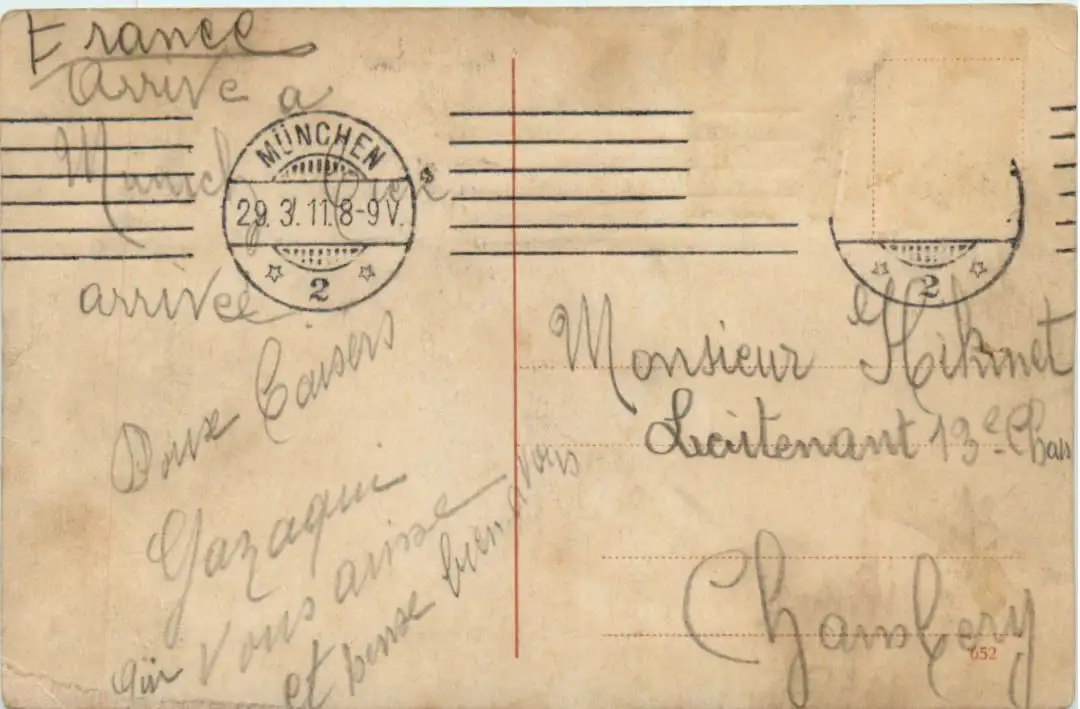 France
Arrive a
Munich
arrivée
Doux Baisers
Gazaqui
qui vous aime
et pense bien a vous
MÜNCHEN
29. 3. 11. 8-9 V.
2
2
Monsieur
Leitenant 13e Chas
Chambery
652